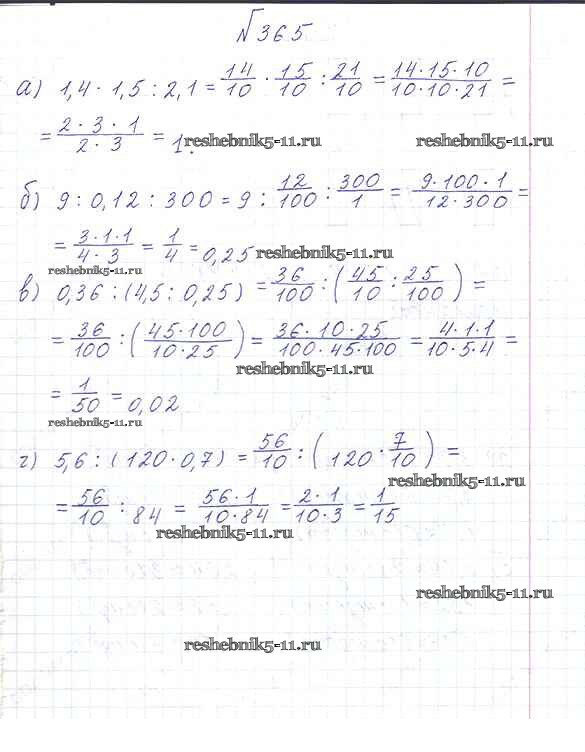 №365
а) 1,4 · 1,5 : 2,1 = 14/10 · 15/10 : 21/10 = 14·15·10/10·10·21 =
= 2·3·1/2·3 = 1.
reshebnik5-11.ru reshebnik5-11.ru
б) 9 : 0,12 : 300 = 9 : 12/100 : 300/1 = 9·100·1/12·300 =
= 3·1·1/4·3 = 1/4 = 0,25
reshebnik5-11.ru
reshebnik5-11.ru
в) 0,36 : (4,5 : 0,25) = 36/100 : (45/10 : 25/100) =
= 36/100 : (45·100/10·25) = 36·10·25/100·45·100 = 4·1·1/10·5·4 =
reshebnik5-11.ru
= 1/50 = 0,02
reshebnik5-11.ru
г) 5,6 : (120 · 0,7) = 56/10 : (120 · 7/10) =
reshebnik5-11.ru
= 56/10 : 84 = 56·1/10·84 = 2·1/10·3 = 1/15
reshebnik5-11.ru
reshebnik5-11.ru
reshebnik5-11.ru